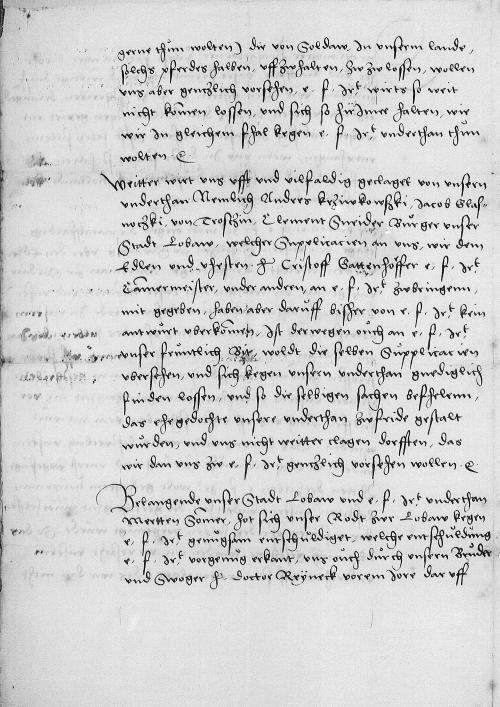 gerne thun wolten) die von Soldaw, In unserm lande,
solchs pferdes halben, uff zwhalten, zw zw lossen, wollen
uns aber gentzlich vorsehen, e. f. Jr.t wirts so weit
nicht komen lossen, und sich so hirInnee halten, wie
wir In gleichem fhal kegen e. f. Jr.t underthan thun
wolten &
Weitter wirt uns offt und vilfaldig geclaget von unsern
underthan Nemlich Andres krziwkowszki, Jacob Glas-
noczki, von Troschin, Clement Sneider Burger unser
Stadt Lobaw, welcher Supplicacien an uns, wir dem
Edlen und vhesten H Cristoff Gattenhoffer e. f. Jr.t
Camermeister, under andren, an e. f. Jr.t zwbringenn,
mit gegeben, haben aber daruff bisher von e. f. Jr.t kein
antwurt uberkomen, Ist derwegen ouch an e. f. Jr.t
unser fruntlich Bit, woldt die selben Supplicacien
ubersehen, und sich kegen unsern underthan gnediglich
finden lossen, und so die selbigen sachen beffhelenn,
das ehegedochte unsere underthan zwfride gestalt
wurden, und uns nicht weitter clagen dorfften, das
wir dan uns zw e. f. Jr.t gentzlich vorsehen wollen &
Belangende unser Stadt Lobaw und e. f. Jr.t underthan
Mertten Somer, hot sich unser Rodt zwr Lobaw kegen
e. f. Jr.t genugsam entschuldiget, welche entschuldung
e. f. Jr.t vorgenug erkant, uns ouch durch unsern Bruder
und Swoger H. doctor Reyneck vorem Jore dar uff